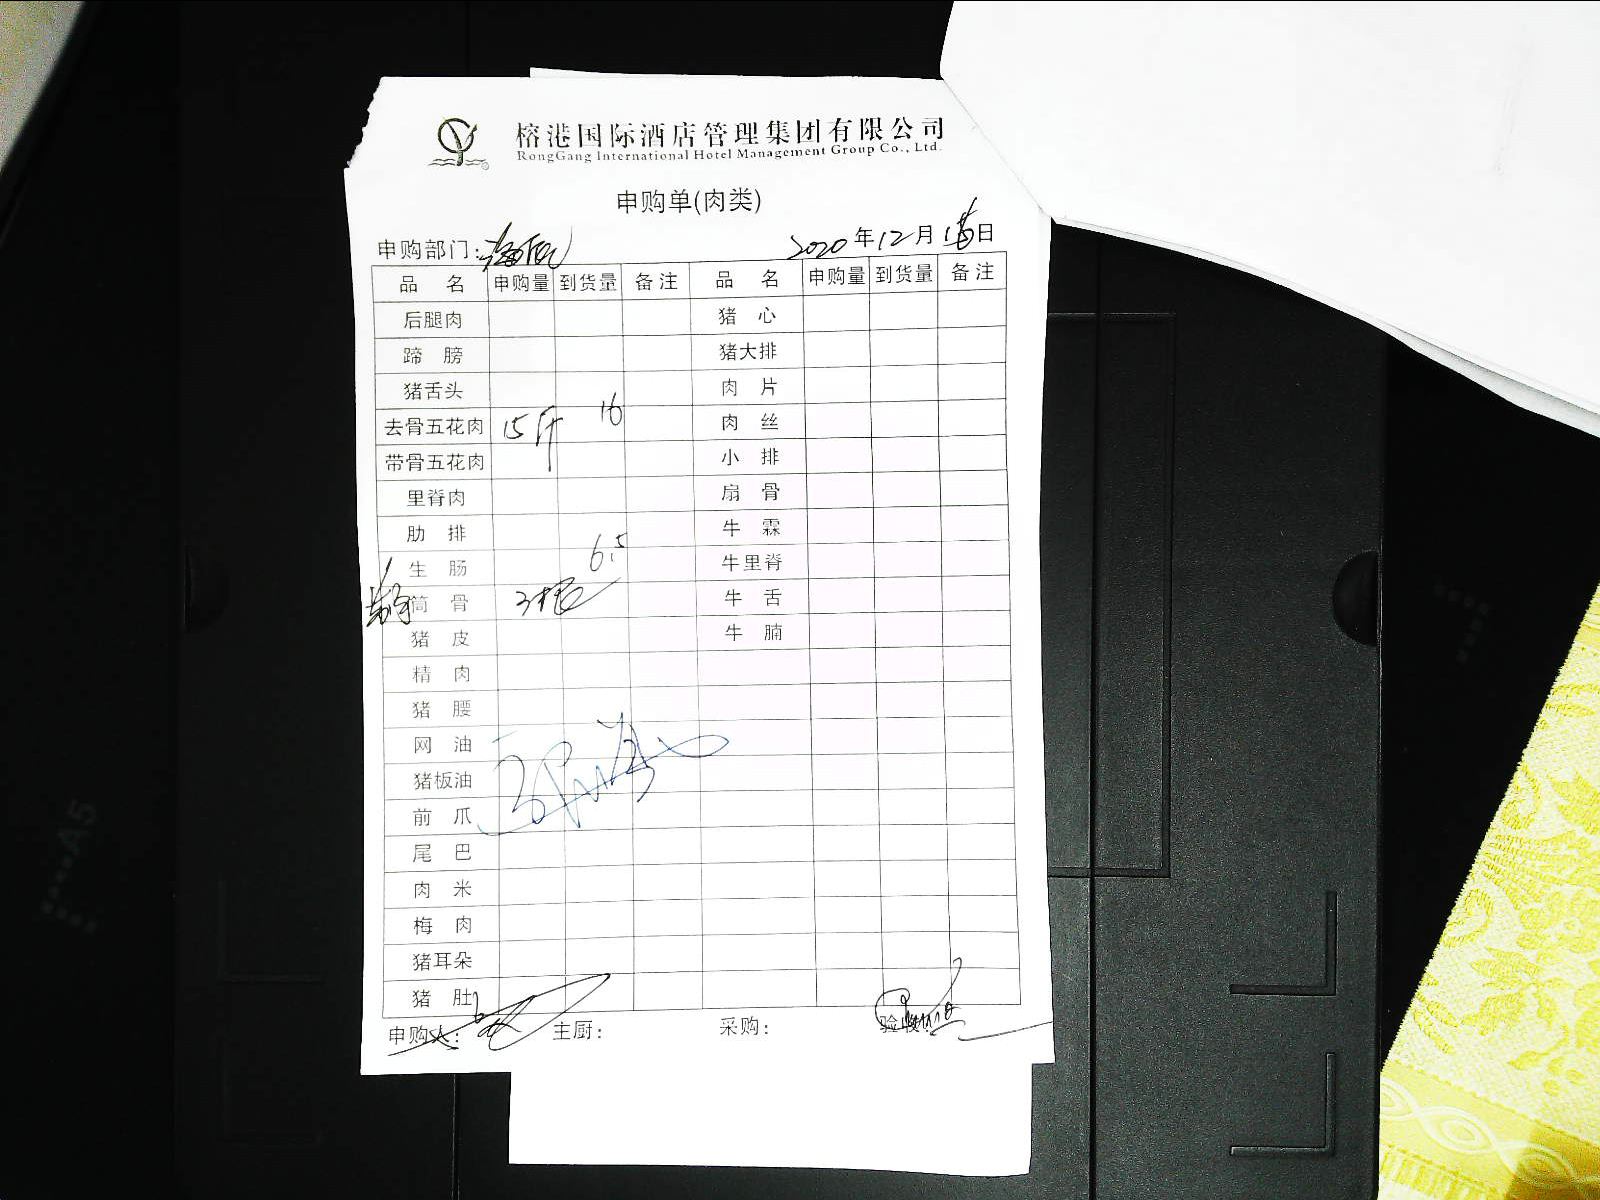 榕港国际酒店管理集团有限公司
RongGang International Hotel Management Group Co., Ltd.
申购单(肉类)
申购部门: 2020年12月 日
品 名 申购量 到货量 备注 品 名 申购量 到货量 备注
后腿肉 猪 心
蹄 膀 猪大排
猪舌头 肉 片
去骨五花肉 15斤 16 肉 丝
带骨五花肉 小 排
里脊肉 扇 骨
肋 排 牛 霖
生 肠 6.5 牛里脊
筒 骨 3根 牛 舌
猪 皮 牛 腩
精 肉
猪 腰
网 油
猪板油
前 爪
尾 巴
肉 米
梅 肉
猪耳朵
猪 肚
申购人: 主厨: 采购: 验收:
A5